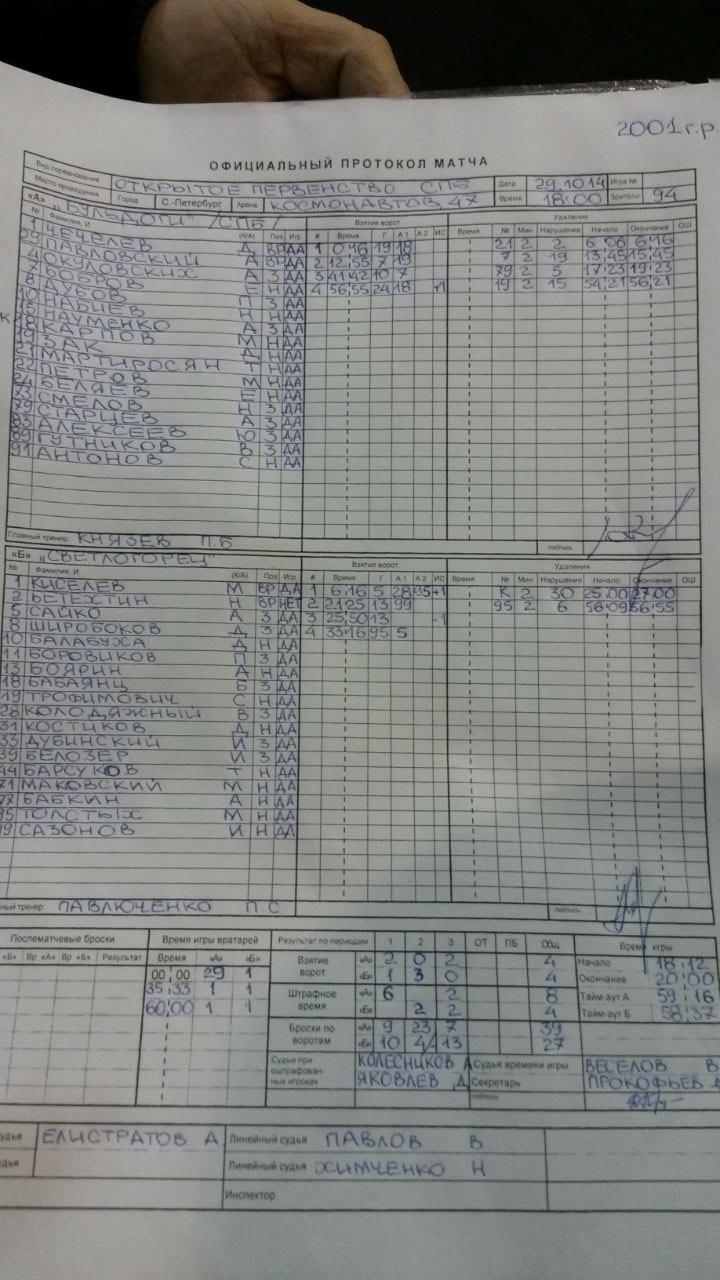 2001г.р.
ОФИЦИАЛЬНЫЙ ПРОТОКОЛ МАТЧА
Вид соревнования ОТКРЫТОЕ ПЕРВЕНСТВО СПБ Дата 29.10.14 Игра №
Место проведения Город С.-Петербург Арена КОСМОНАВТОВ, 47 Время 18:00 Зрители 94
«А» „БУЛЬДОГИ" /СПБ/ Взятие ворот Удаления
№ Фамилия, И. (К/А) Поз Игр # Время Г А1 А2 ИС Время № Мин Нарушение Начало Окончание ОШ
1 ЧЕЧЕЛЕВ Д ВР ДА 1 0:16 19 18 21 2 2 6:06 6:16
29 ПАВЛОВСКИЙ А ВР ДА 2 12:55 7 19 7 2 19 13:45 15:45
4 ОКУЛОВСКИХ А З ДА 3 41:42 10 7 79 2 5 17:23 19:23
7 БОБРОВ Е Н ДА 4 56:55 24 18 +1 19 2 15 54:21 56:21
8 ДУБОВ П З ДА
10 НАБИЕВ Н Н ДА
НАУМЕНКО А З ДА
К 18 КАРПОВ М Н ДА
19 ЗАК Д Н ДА
21 МАРТИРОСЯН Т Н ДА
22 ПЕТРОВ М Н ДА
24 БЕЛЯЕВ Е Н ДА
73 СМЕЛОВ Н З ДА
79 СТАРЦЕВ А З ДА
83 АЛЕКСЕЕВ Ю З ДА
89 ГУТНИКОВ В З ДА
91 АНТОНОВ С Н ДА
Главный тренер КНЯЗЕВ П.Б подпись
«Б» „СВЕТЛОГОРЕЦ" Взятие ворот Удаления
№ Фамилия, И. (К/А) Поз Игр # Время Г А1 А2 ИС Время № Мин Нарушение Начало Окончание ОШ
1 КИСЕЛЕВ М ВР ДА 1 6:16 5 28 95 +1 К 2 30 25:00 27:00
2 БЕТЕХТИН Н ВР НЕТ 2 21:25 13 99 95 2 6 56:09 56:55
5 САЙКО А З ДА 3 25:50 13 -1
8 ШИРОБОКОВ Д З ДА 4 33:16 95 5
10 БАЛАБУХА Д Н ДА
11 БОРОВИКОВ П З ДА
13 БОЯРИН А Н ДА
18 БАБАЯНЦ Б З ДА
19 ТРОФИМОВИЧ С Н ДА
28 КОЛОДЯЖНЫЙ В З ДА
31 КОСТИКОВ Д Н ДА
33 ДУБИНСКИЙ И З ДА
39 БЕЛОЗЕР И З ДА
44 БАРСУКОВ Т Н ДА
71 МАКОВСКИЙ М Н ДА
77 БАБКИН А Н ДА
95 ТОЛСТЫХ М Н ДА
99 САЗОНОВ И Н ДА
ный тренер ПАВЛЮЧЕНКО П.С подпись
Послематчевые броски Время игры вратарей Результат по периодам 1 2 3 ОТ ПБ Общ Время игры
«Б» Вр «А» Вр «Б» Результат Время «А» «Б» Взятие ворот «А» 2 0 2 4 Начало 18:12
00:00 29 1 «Б» 1 3 0 4 Окончание 20:00
35:33 1 1 Штрафное время «А» 6 2 8 Тайм-аут А 59:16
60:00 1 1 «Б» 2 2 4 Тайм-аут Б 58:37
Броски по воротам «А» 9 23 7 39
«Б» 10 4 13 27
Судьи при оштрафованных игроках КОЛЕСНИКОВ А Судья времени игры ВЕСЕЛОВ В
ЯКОВЛЕВ Д Секретарь ПРОКОФЬЕВ
подпись
судья ЕЛИСТРАТОВ А Линейный судья ПАВЛОВ В
удья Линейный судья ХИМЧЕНКО Н
Инспектор